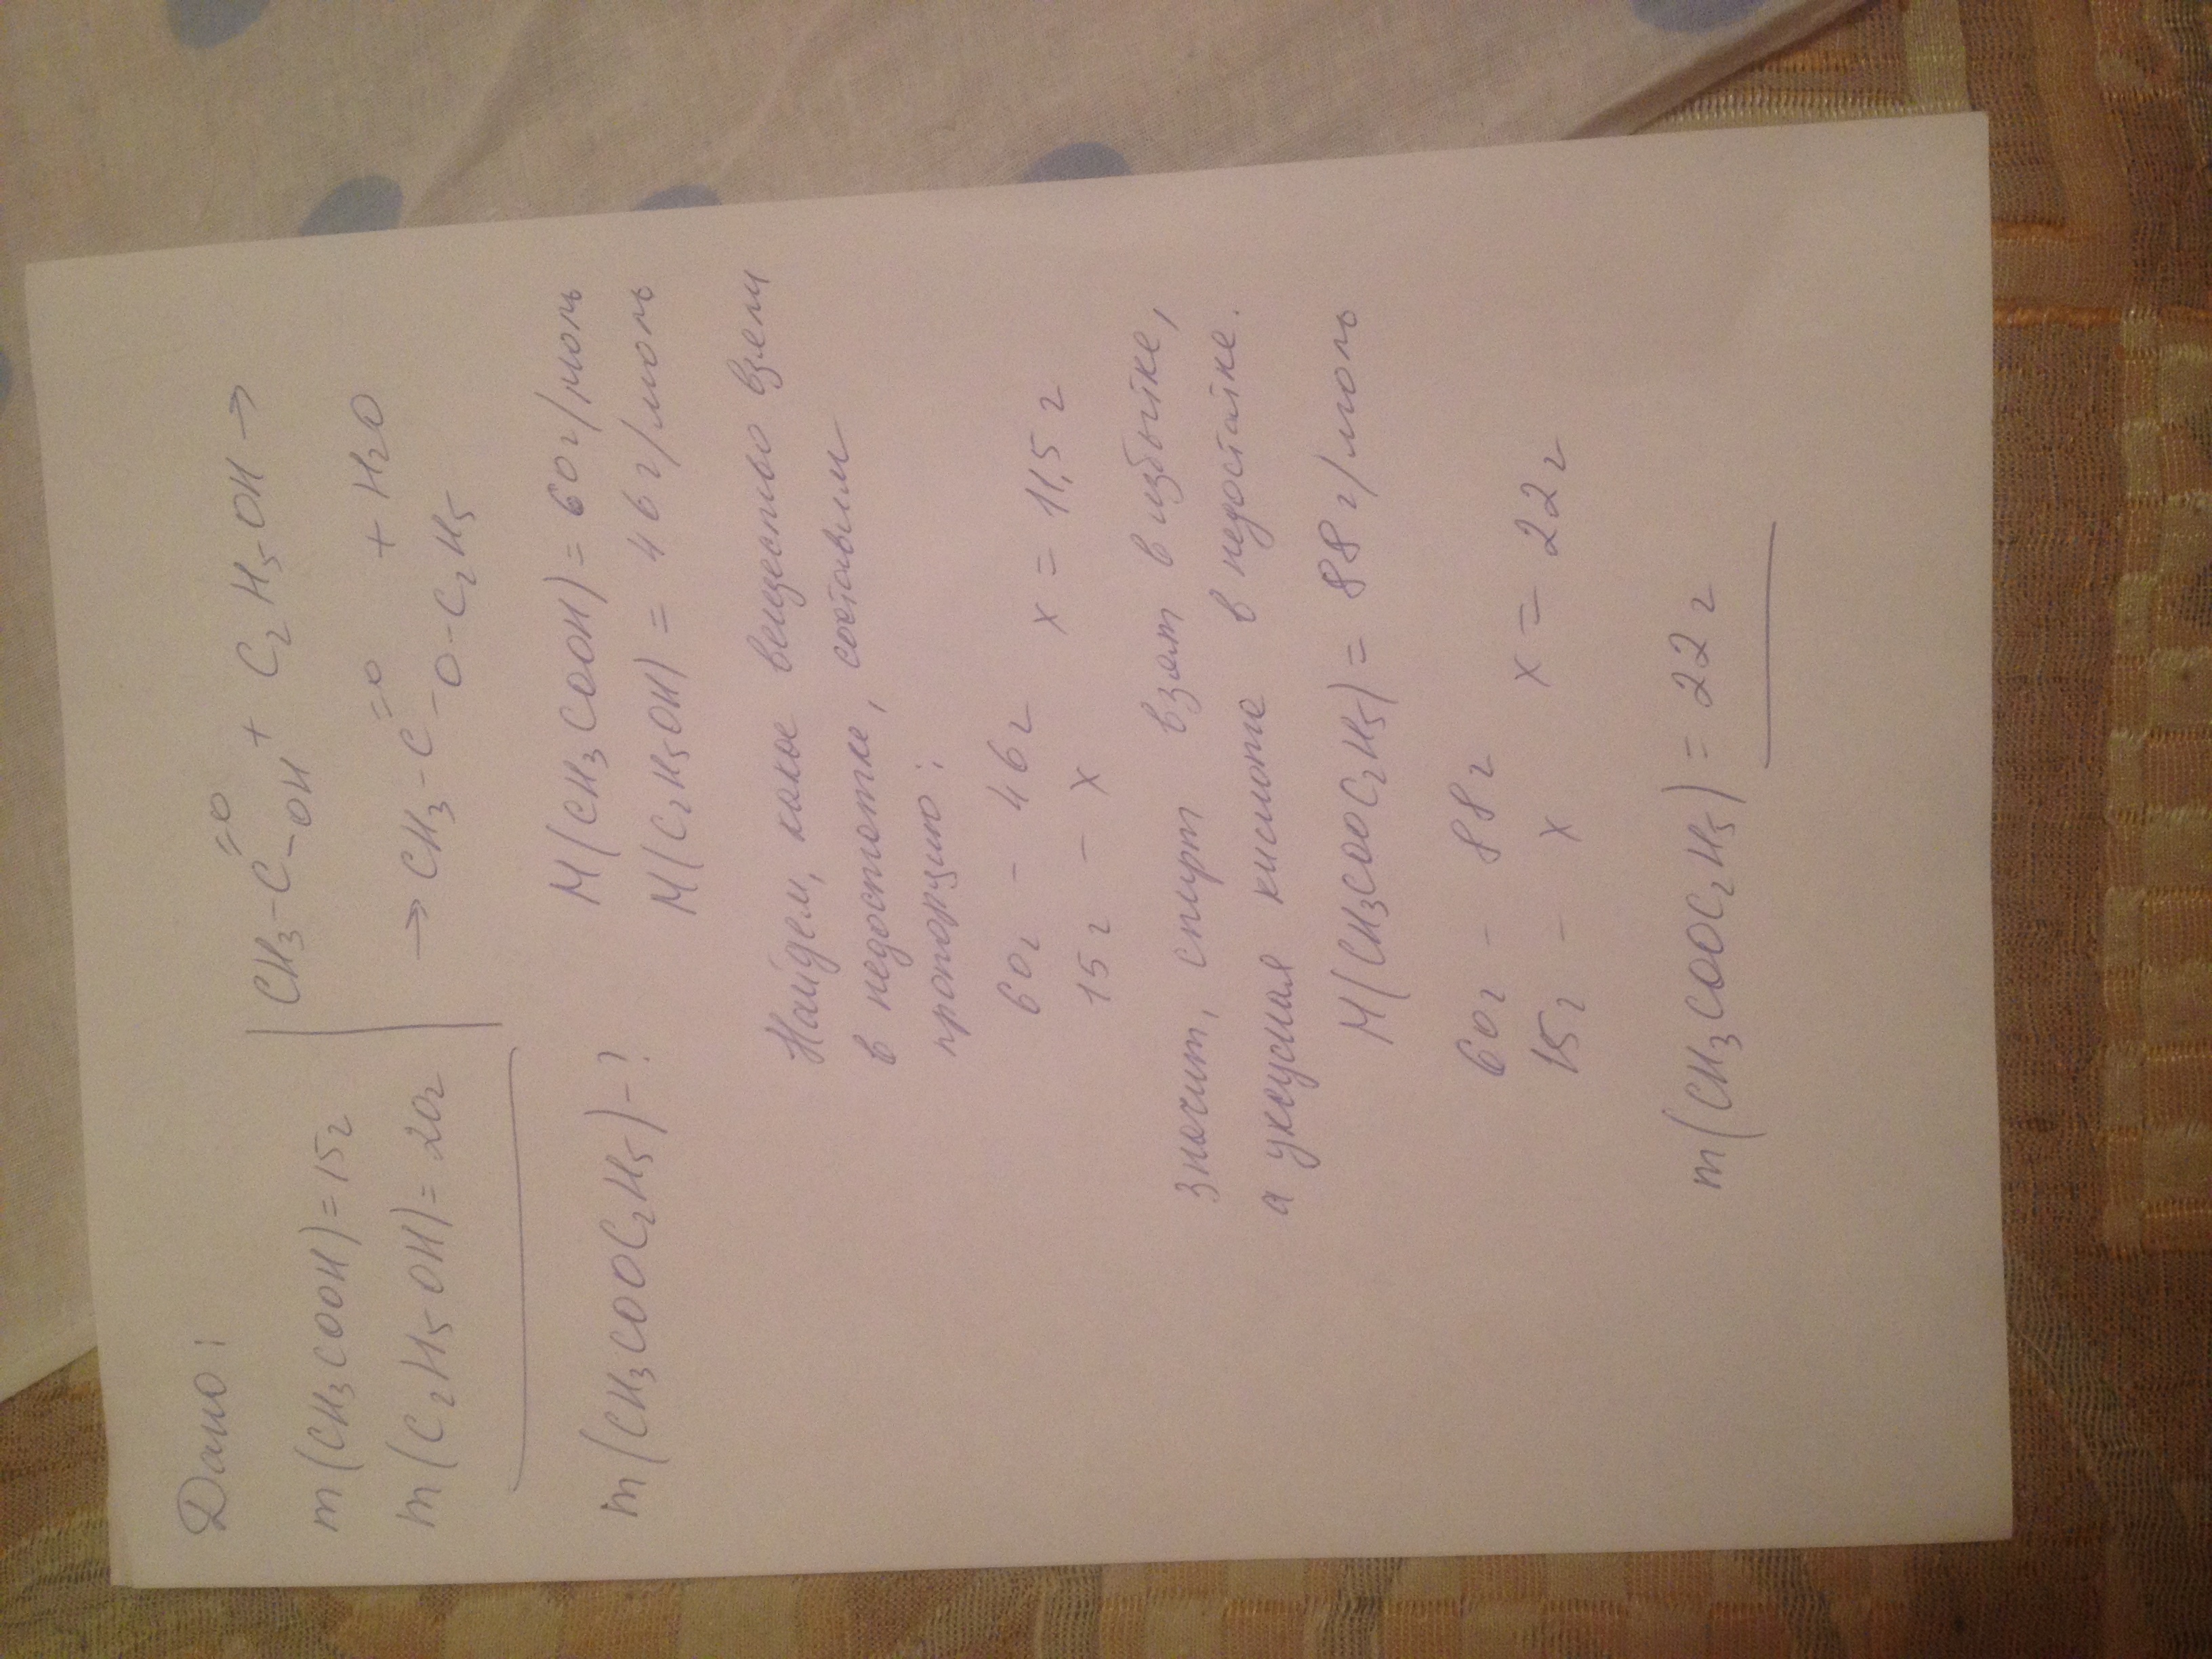 Дано:
m(CH₃COOH)=15г
m(C₂H₅OH)=20г
m(CH₃COOC₂H₅)-?
CH₃-C=O-OH + C₂H₅OH →
→ CH₃-C=O-O-C₂H₅ + H₂O
M(CH₃COOH) = 60г/моль
M(C₂H₅OH) = 46г/моль
Найдем, какое вещество взяли
в недостатке, составим
пропорцию:
60г - 46г
15г - x x = 11,5г
значит, спирт взят в избытке,
а уксусная кислота в недостатке.
M(CH₃COOC₂H₅) = 88г/моль
60г - 88г
15г - x x = 22г
m(CH₃COOC₂H₅) = 22г